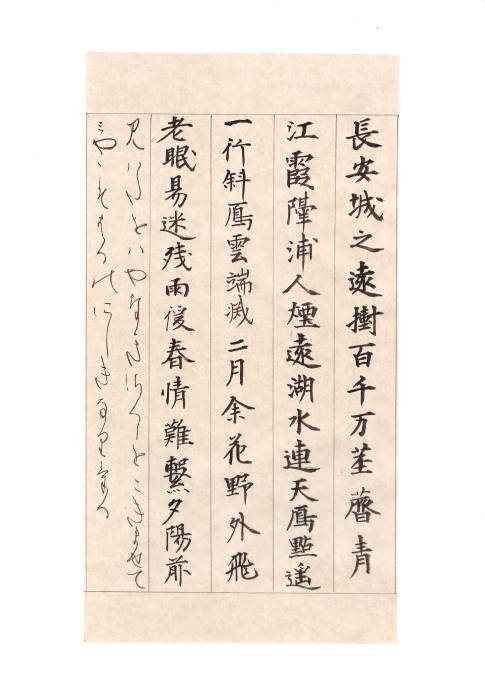 長安城之遠樹百千万茎薺青
江霞隔浦人煙遠湖水連天鴈點遥
一行斜鴈雲端滅二月余花野外飛
老眼易迷残雨後春情難繋夕陽前
見わたせハやなきさくらをこきませて
みやこそはるのにしきなりける